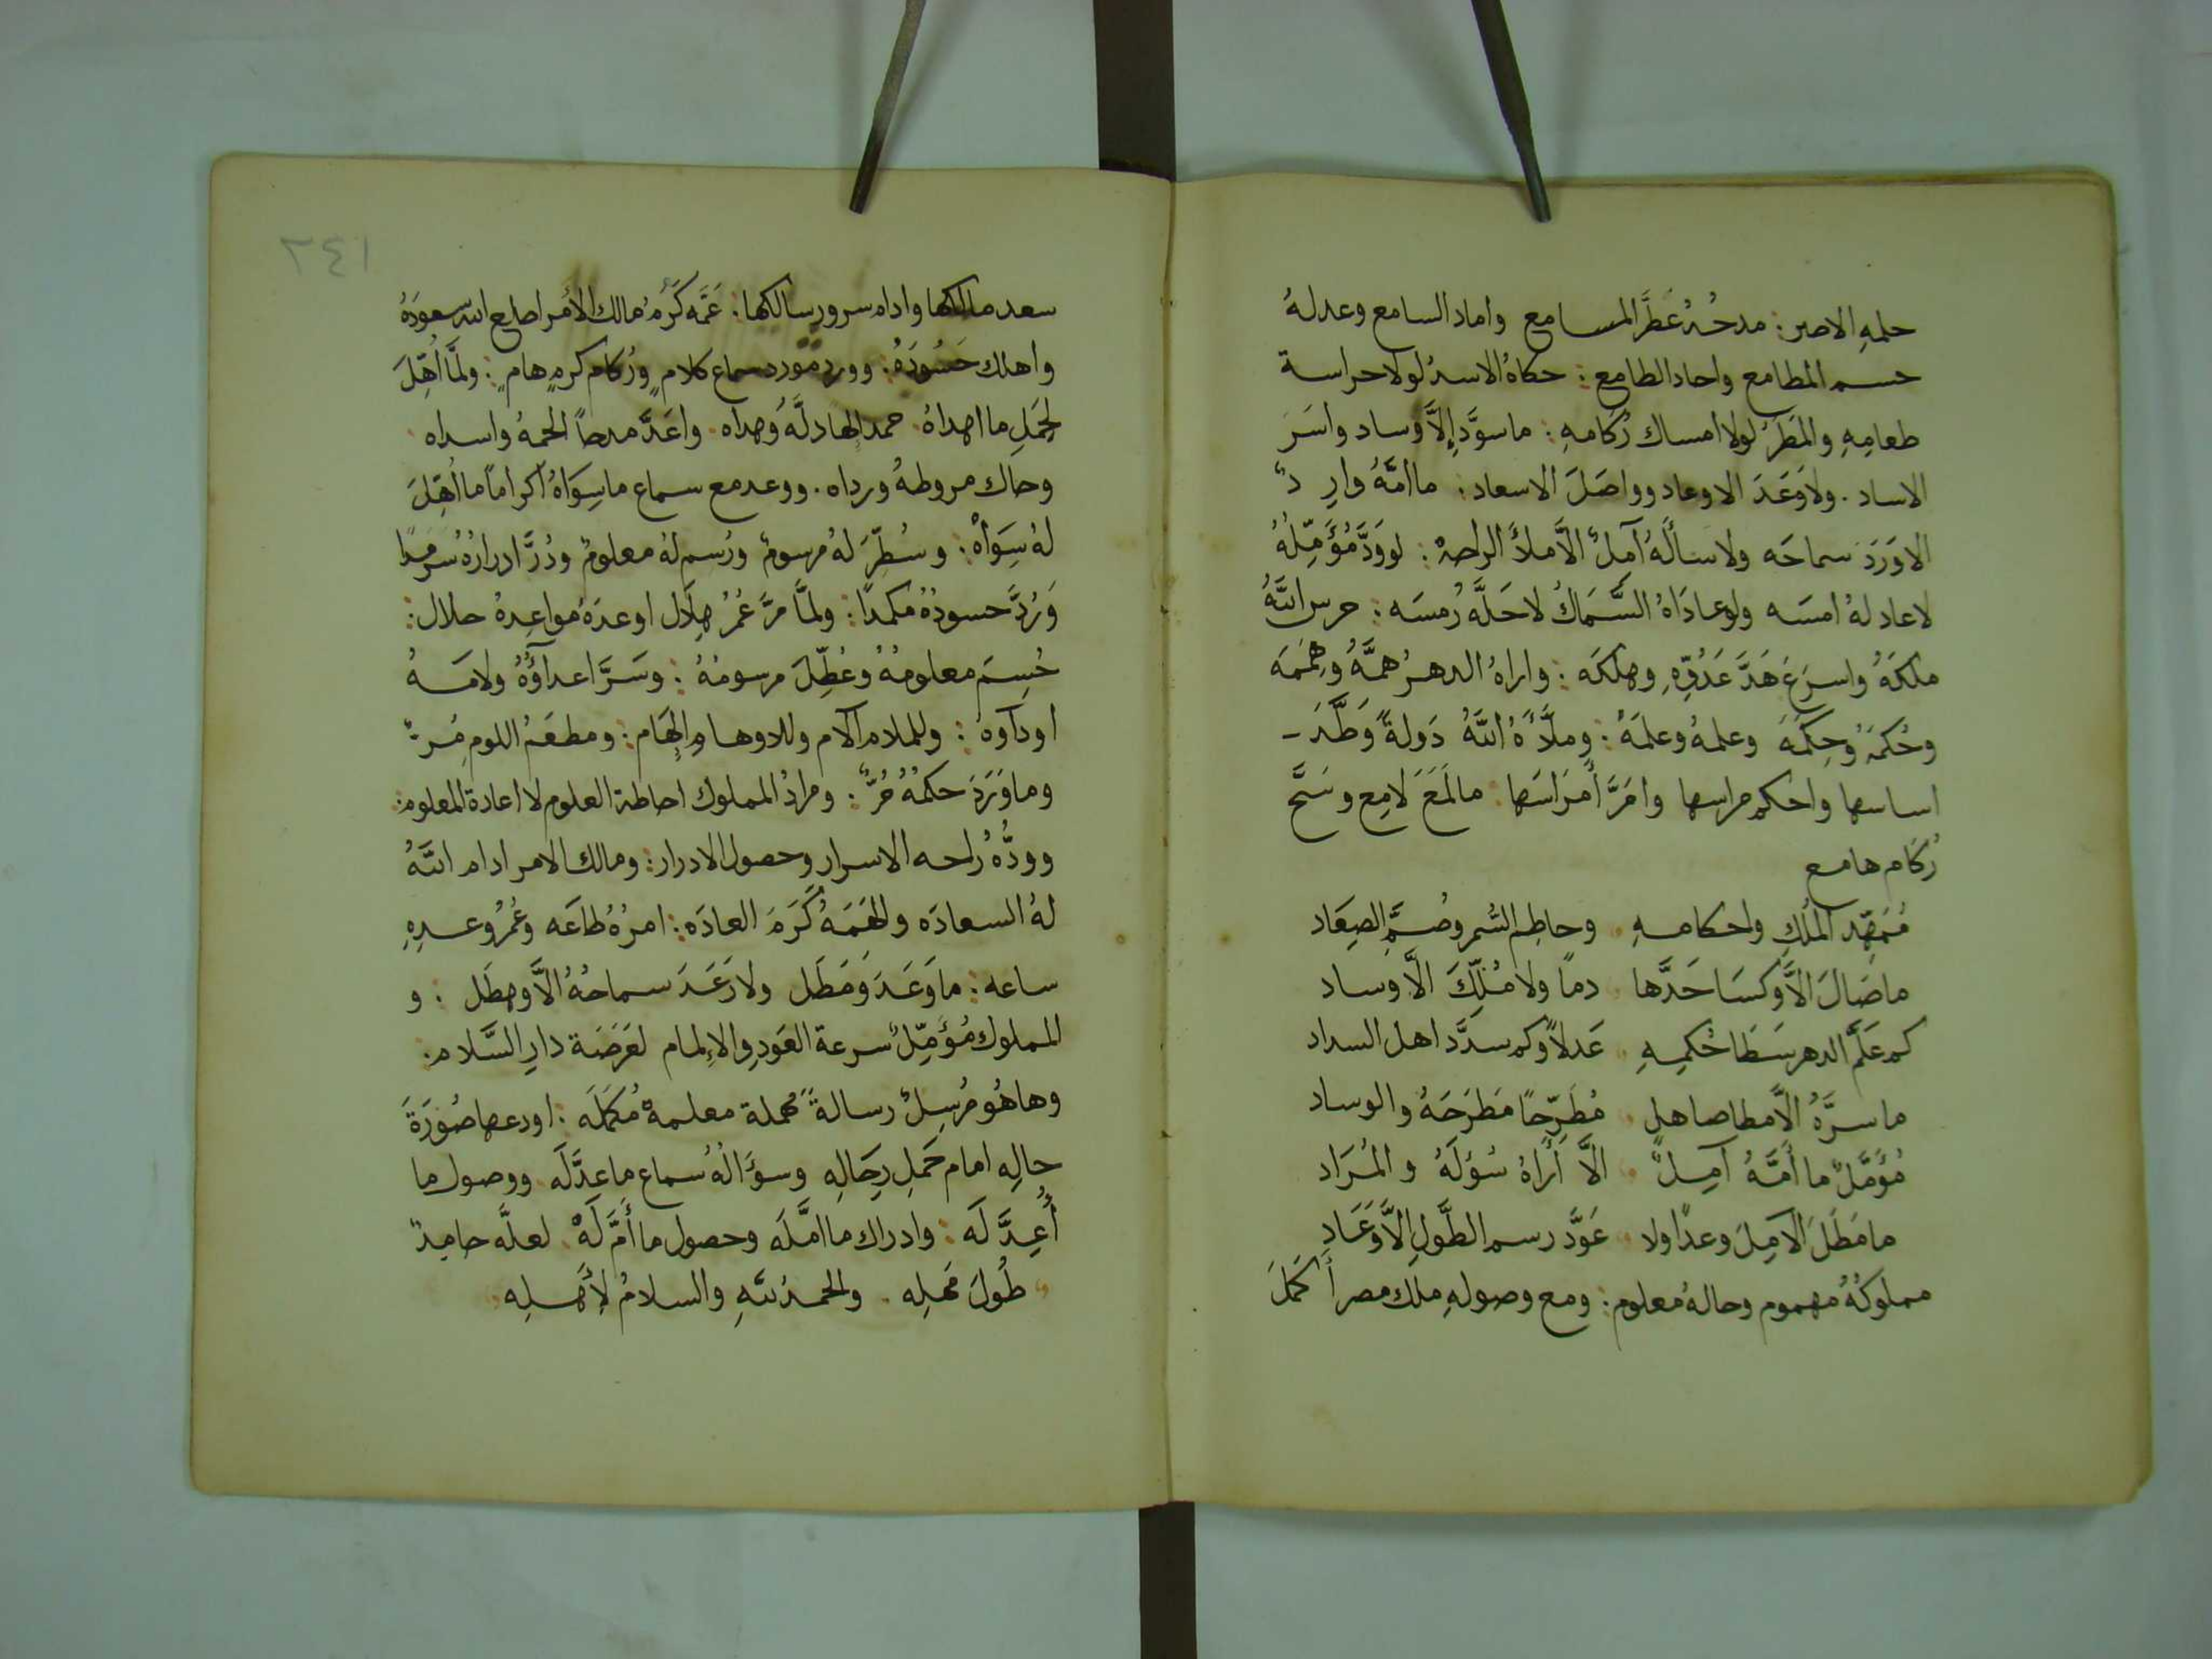 حلمهِ الاصر: مدحُهُ عَطَّرَ المسامع واماد السامع وعدلهُ
حسم المطامع واحاد الطامع: حكاهُ الاسدُ لولا حراسة
طعامِهِ والمَطَرُ لولا امساك رُكامهِ: ما سوَّدَ إلاَّ وساد واسَرَ
الاساد. ولا وَعَدَ الاوعاد وواصَلَ الاسعاد: ما امَّهُ وارِدٌ
الا وَرَدَ سماحَه ولا سألَهُ آمِلٌ الاَّ ملأَ الراحهْ: لو وَدَّ مُؤَمِّلُهُ
لاعاد لهُ امسَه ولو عادَاهُ السَّمَاكُ لاحَلَّهُ رُمسَه: حرس اللَّهُ
ملكَهُ واسرَعَ هَدَّ عَدُوِّهِ وهلكَه: واراهُ الدهرُ همَّهُ وهِمَمَه
وحُكمَهُ وحِكَمَهَ وعلمهُ وعلمَهُ: وملَّأَهُ اللَّهُ دَولةً وَطَّدَ
اساسها واحكم مراسها وامَرَّ أمرَاسَها: ما لَمَعَ لامِع وسَحَّ
رُكَام هامع
مُمَهِّد المُلكِ واحكامهِ وحاطِم السُّمر وصُمِّ الصِعَاد
ما صَالَ الاَّ وَكسَا حَدَّها دمًا ولا مُلِّكَ الاَّ وساد
كم عَلَّمَ الدهر سَطَا حُكمِهِ عَدلاً وكم سدَّد اهل السداد
ما سرَّهُ الاَّ مطا صاهلٍ مُطَرِّحًا مَطرَحَهُ والوساد
مُؤَمَّلٌ ما أمَّهُ آمِلٌ الاَّ أرَاهُ سُؤلَهُ والمُرَاد
ما مَطَلَ الآمِلَ وعدًا ولا عَوَّدَ رسم الطَّولِ الاَّ وَعَاد
مملوكُهُ مهموم وحالهُ معلوم: ومع وصولهِ ملك مصر أكمَلَ
٢٤١
سعد مالكها وادام سرور سالكها: عَمَّه كَرَمُ مالك الأمر اطلع الله سعودَهُ
واهلك حَسُودَهُ: وورد مورد سماع كلامٍ ورُكام كرمٍ هامٍ: ولمَّا أُهِّلَ
لِحَملِ ما اهداهُ. حمد إلها دلَّهُ وهداه. واعَدَّ مدحًا الحمهُ واسداه.
وحاك مروطهُ ورداه. ووعد مع سماع ما سِوَاهُ اكرامًا ما أُهِّلَ
لهُ سِوَاهْ: وسُطِّرَ لهُ مرسومٌ ورُسم لهُ معلومٌ ودُرَّ ادرارُهُ سرمدًا
وَرُدَّ حسودُهُ مكمدًا: ولمَّا مرَّ عُمرُ هِلَال اوعدَهُ مواعِدهُ حلال:
حُسِمَ معلومُهُ وعُطِّلَ مرسومُهُ: وسَرَّ اعداؤُهُ ولامَهُ
اودآوه: وللملام آلام وللاوهام إلهام: ومطعَمُ اللوم مُرٌّ
وما وَرَدَ حكمُهُ مُرٌّ: ومرادُ المملوك احاطة العلوم لا اعادة المعلوم:
وودُّهُ راحه الاسرار وحصول الادرار: ومالك الامر ادام اللَّهُ
لهُ السعادَه والهَمَهُ كَرَمَ العادَه: امرُهُ طاعَه وعُمرُ وعدِهِ
ساعه: ما وَعَدَ وَمَطَل ولا رَعَدَ سماحُهُ الاَّ وهطَل: و
المملوك مُؤَمِّلٌ سرعة العَودِ والإلمام لعَرَصَة دارِ السَّلام.
وها هُو مُرسِلٌ رسالةً مهملة معلمهْ مُكمَلَه: اودعها صُورَةَ
حالِهِ امام حَملِ رِحَالِهِ وسؤالُهُ سماع ما عدَّلَه ووصول ما
أُعِدَّ لَه: وادراك ما امَّلَه وحصول ما أُمَّ لَهْ. لعلَّه حامِدٌ
طُولَ مَهلِه. والحمدُ للَّهِ والسلامُ لأِهلِه